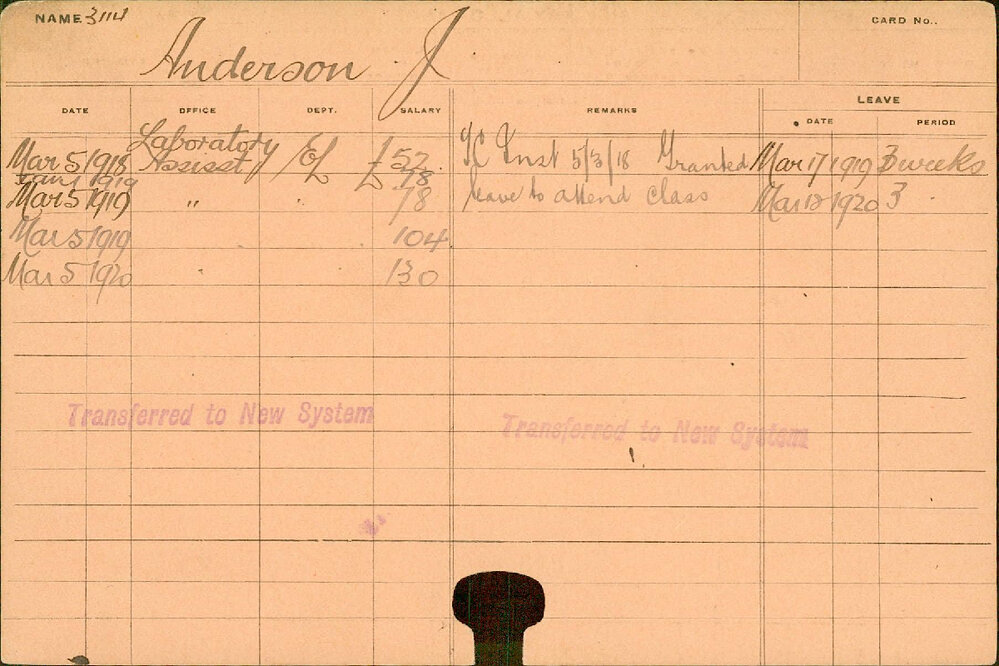 NAME 3114 CARD No..
Anderson J
DATE OFFICE DEPT. SALARY REMARKS LEAVE
DATE PERIOD
Laboratory
Mar 5 1918 Assist £52 Inst 5/3/18 Granted Mar 17 1919 3 weeks
Jan 1 1919 £78
Mar 5 1919 " " 78 leave to attend Class Mar 12 1920 3 "
Mar 5 1919 104
Mar 5 1920 " 130
Transferred to New System Transferred to New System